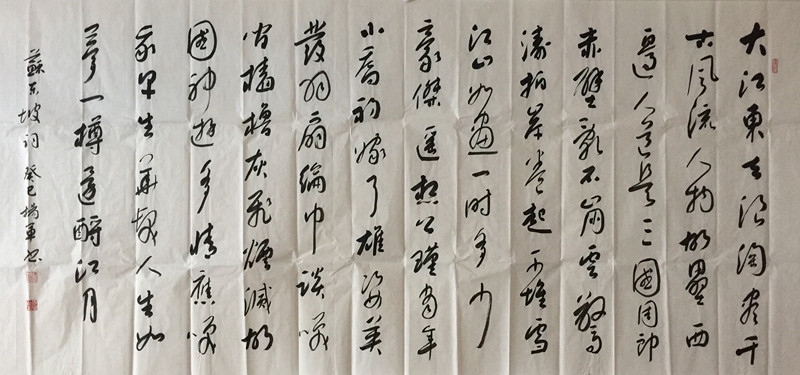 大江東去浪淘盡千
古風流人物故壘西
邊人道是三國周郎
赤壁亂石崩雲驚
濤拍岸卷起千堆雪
江山如畫一時多少
豪傑遙想公瑾當年
小喬初嫁了雄姿英
發羽扇綸巾談笑
間檣櫓灰飛煙滅故
國神遊多情應笑
我早生華髮人生如
夢一樽還酹江月
蘇東坡詞 癸巳 楊軍書